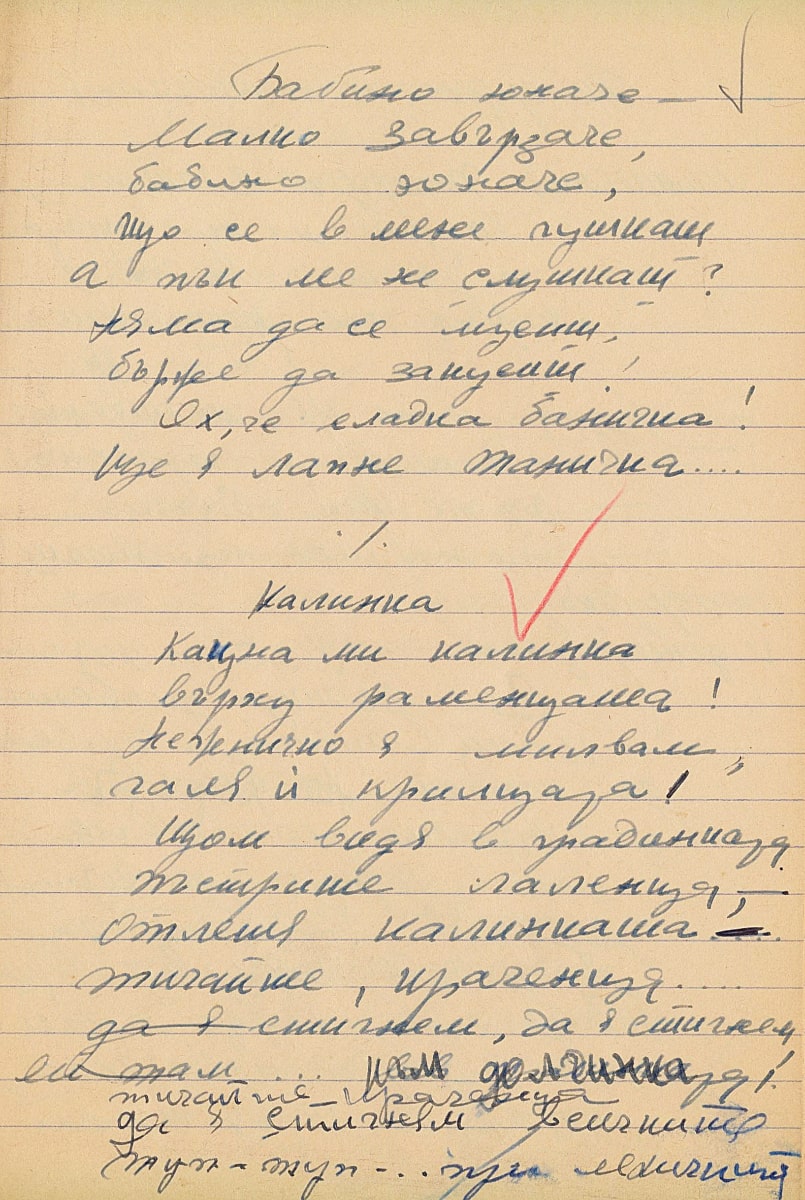 Бабино юначе –
Малко завързаче,
бабино юначе,
що се в мене гушкаш
а пък ме не слушкаш?
Няма да се мусиш,
бърже да закусиш!
Ях, че сладка баничка!
Ще я лапне Таничка....
./.
Калинка
Кацна ми калинка
върху раменцата!
Нежничко я милвам,
галя ѝ крилцата!
Щом видя в градинката
пъстрите лаленца, –
отлетя калинката...
тичайте, крачнца....
да я стигнем, да я стигнем
ей там ... към долчинка!
тичайте крачнца
да я стигнем всичките
туп-туп-.. при